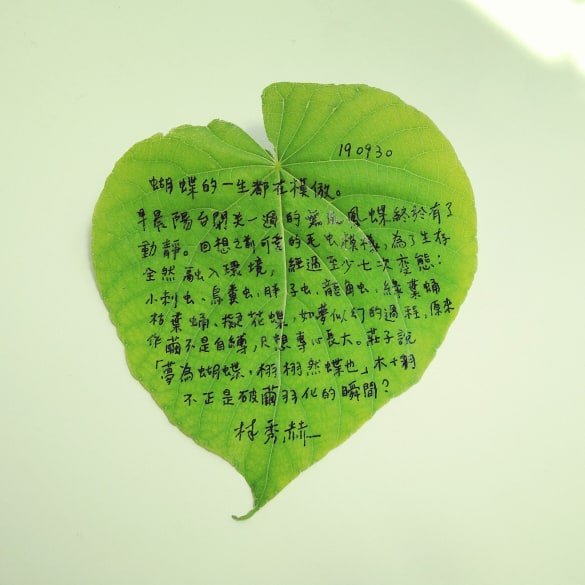 190930
蝴蝶的一生都在模倣。
早晨陽台關先一週的無尾鳳蝶終於有了
動靜。回想之前可愛的毛虫模樣，為了生存
全然融入環境，經過至少七次變態：
小刺虫、鳥糞虫、胖子虫、龍角虫、綠葉蛹
枯葉蛹、擬花蝶，如夢似幻的過程，原來
作繭不是自縛，只想專心長大。莊子說
「夢為蝴蝶，栩栩然蝶也」木+羽
不正是破繭羽化的瞬間？
林秀赫